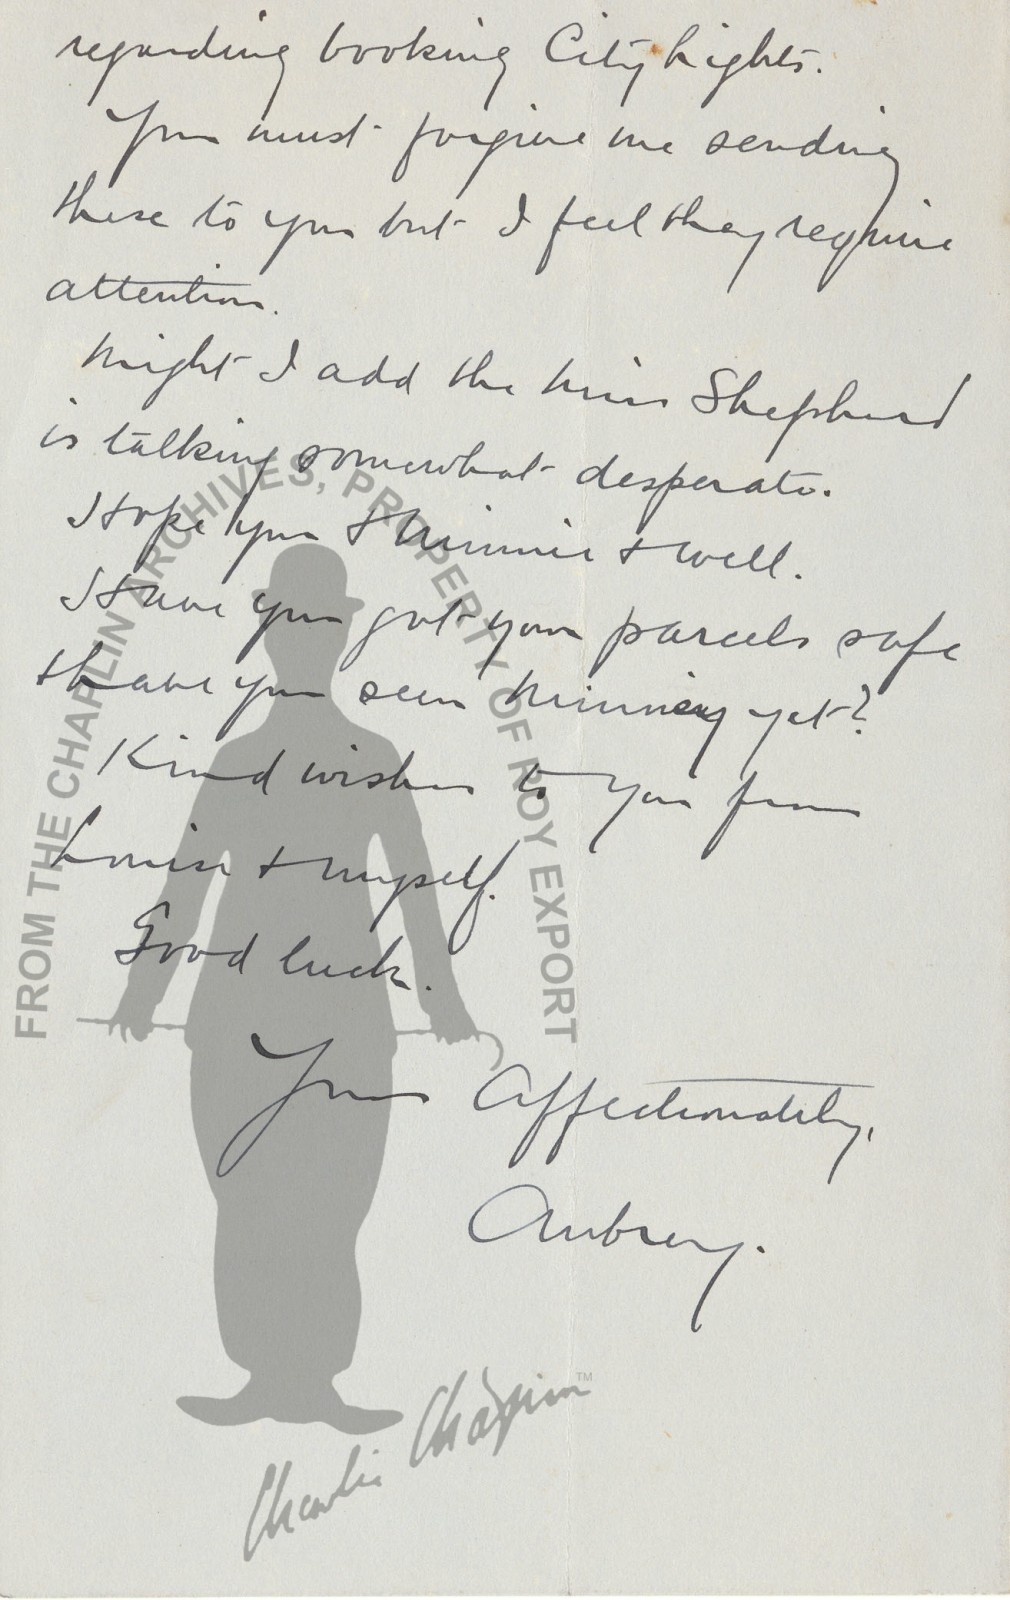 regarding booking City Lights.
You must forgive me sending
these to you but I feel they require
attention.
Might I add the Miss Shepherd
is talking somewhat desperate.
Hope you & Minnie + well.
Have you got your parcels safe
& have you seen Minniey yet?
Kind wishes to you from
Louise & myself.
Good luck.
Yours Affectionately,
Aubrey.
FROM THE CHAPLIN ARCHIVES, PROPERTY OF ROY EXPORT
Charlie Chaplin™